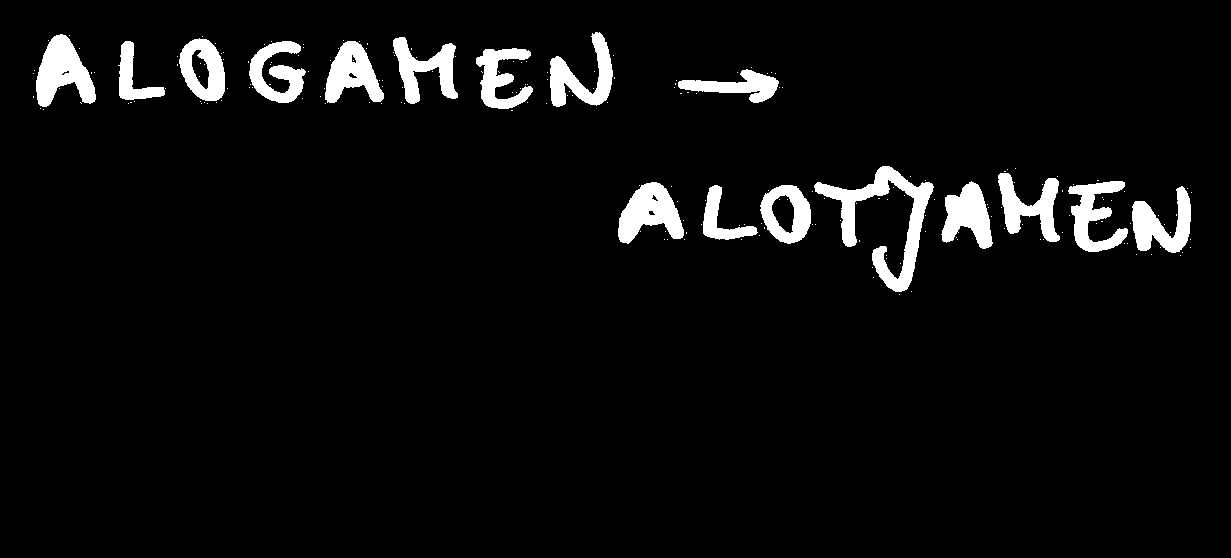 ALOGAMEN →
ALOTJAMEN